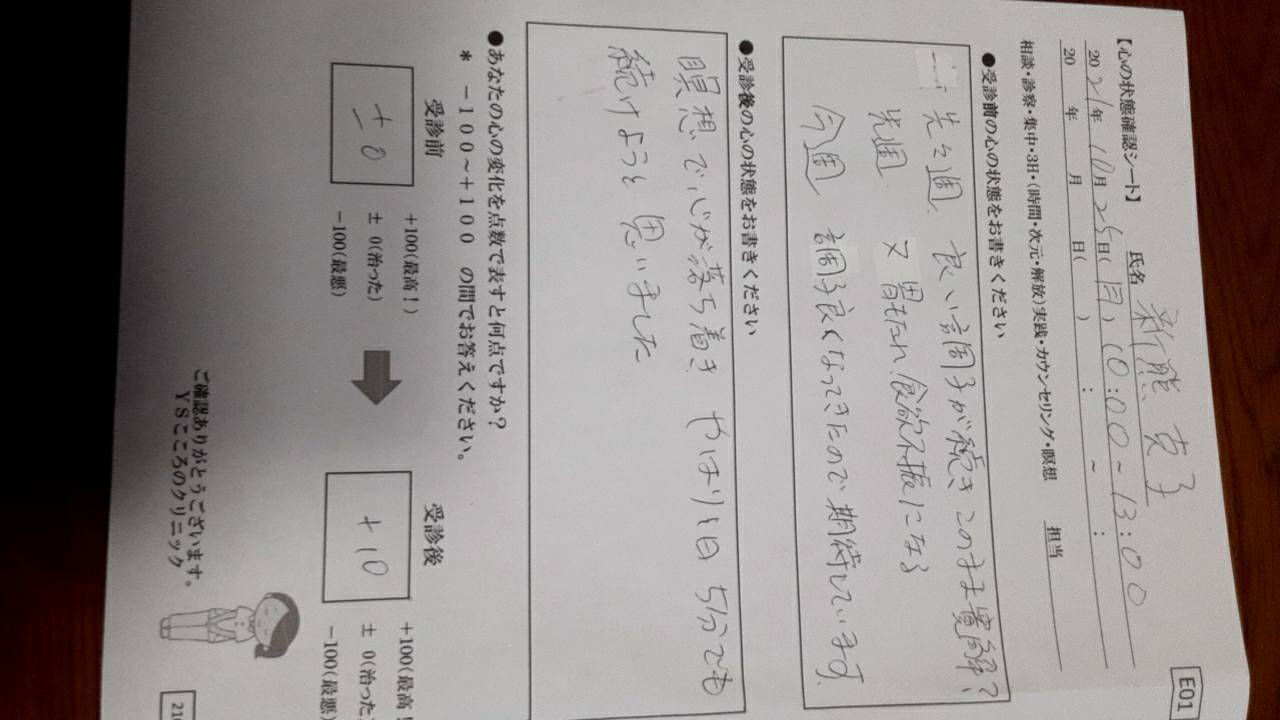 E01
【心の状態確認シート】
氏名 新熊 克子
2021年 10月 25日(月) 10:00 ~ 13:00
20 年 月 日( ) : ~ :
相談・診察・集中・3日・(時間・次元・解放)実践・カウンセリング・瞑想 担当
●受診前の心の状態をお書きください
先々週、良い調子が続きこのまま寛解?
先週 又 胃もたれ、食欲不振になる
今週 調子良くなってきたので期待しています。
●受診後の心の状態をお書きください
瞑想で、心が落ち着き やはり毎日 5分でも
続けようと思いました
●あなたの心の変化を点数で表すと何点ですか?
* -100~+100 の間でお答えください。
受診前
±0
+100(最高!)
± 0(治った)
-100(最悪)
受診後
+10
+100(最高!
± 0(治った
-100(最悪)
ご確認ありがとうございます。
YSこころのクリニック